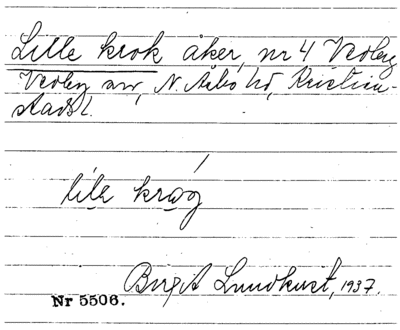 Lille krok åker, nr 4 Vedby
Vedby sn, N. Åsbo hd, Kristian-
stads l.
lile kråg
Birgit Lundkvist, 1937.
Nr 5506.